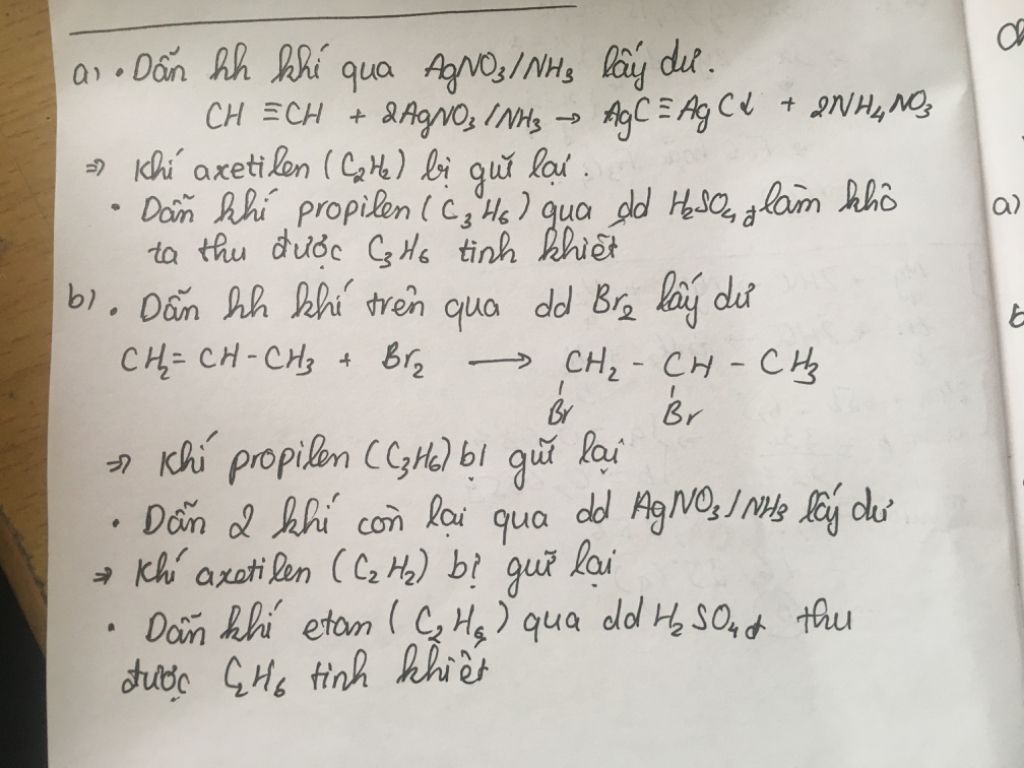 a) • Dẫn hh khí qua AgNO3/NH3 lấy dư.
CH ≡CH + 2AgNO3/NH3 → AgC≡AgC↓ + 2NH4NO3
⇒ Khí axetilen (C2H2) bị gữi lại.
• Dẫn khí propilen (C3H6) qua dd H2SO4 đ làm khô
ta thu được C3H6 tinh khiết
b) • Dẫn hh khí trên qua dd Br2 lấy dư
CH2= CH-CH3 + Br2 ⟶ CH2 - CH - CH3
Br Br
⇒ Khí propilen (C3H6) bị gữi lại
• Dẫn 2 khí còn lại qua dd AgNO3/NH3 lấy dư
⇒ Khí axetilen (C2H2) bị gữi lại
• Dẫn khí etan (C2H6) qua dd H2SO4 đ thu
được C2H6 tinh khiết
a)